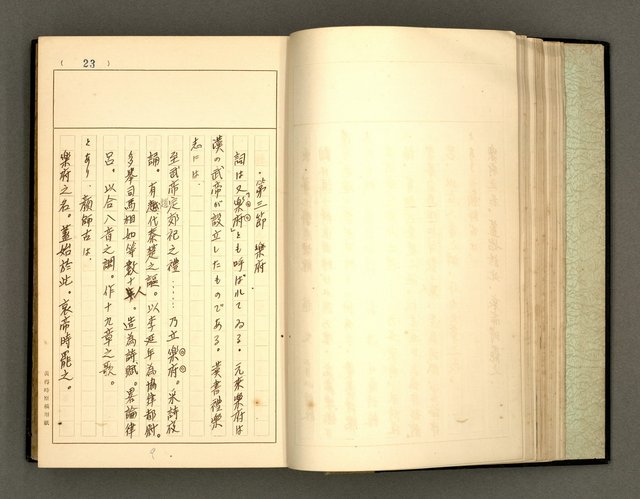 ( 23 )
第三節 樂府
詞は又「樂府」とも呼ばれてゐる。元來樂府は
漢の武帝が設立したものである。漢書禮樂
志には、
至武帝定郊祀之禮……乃立樂府。采詩夜
誦。有趙代秦楚之謳。以李延年為協律都尉。
多擧司馬相如等數十人。造為詩賦。畧論律
呂。以合八音之調。作十九章之歌。
とあり、顏師古は、
樂府之名。蓋始於此。哀帝時罷之。
黃得時原稿用紙